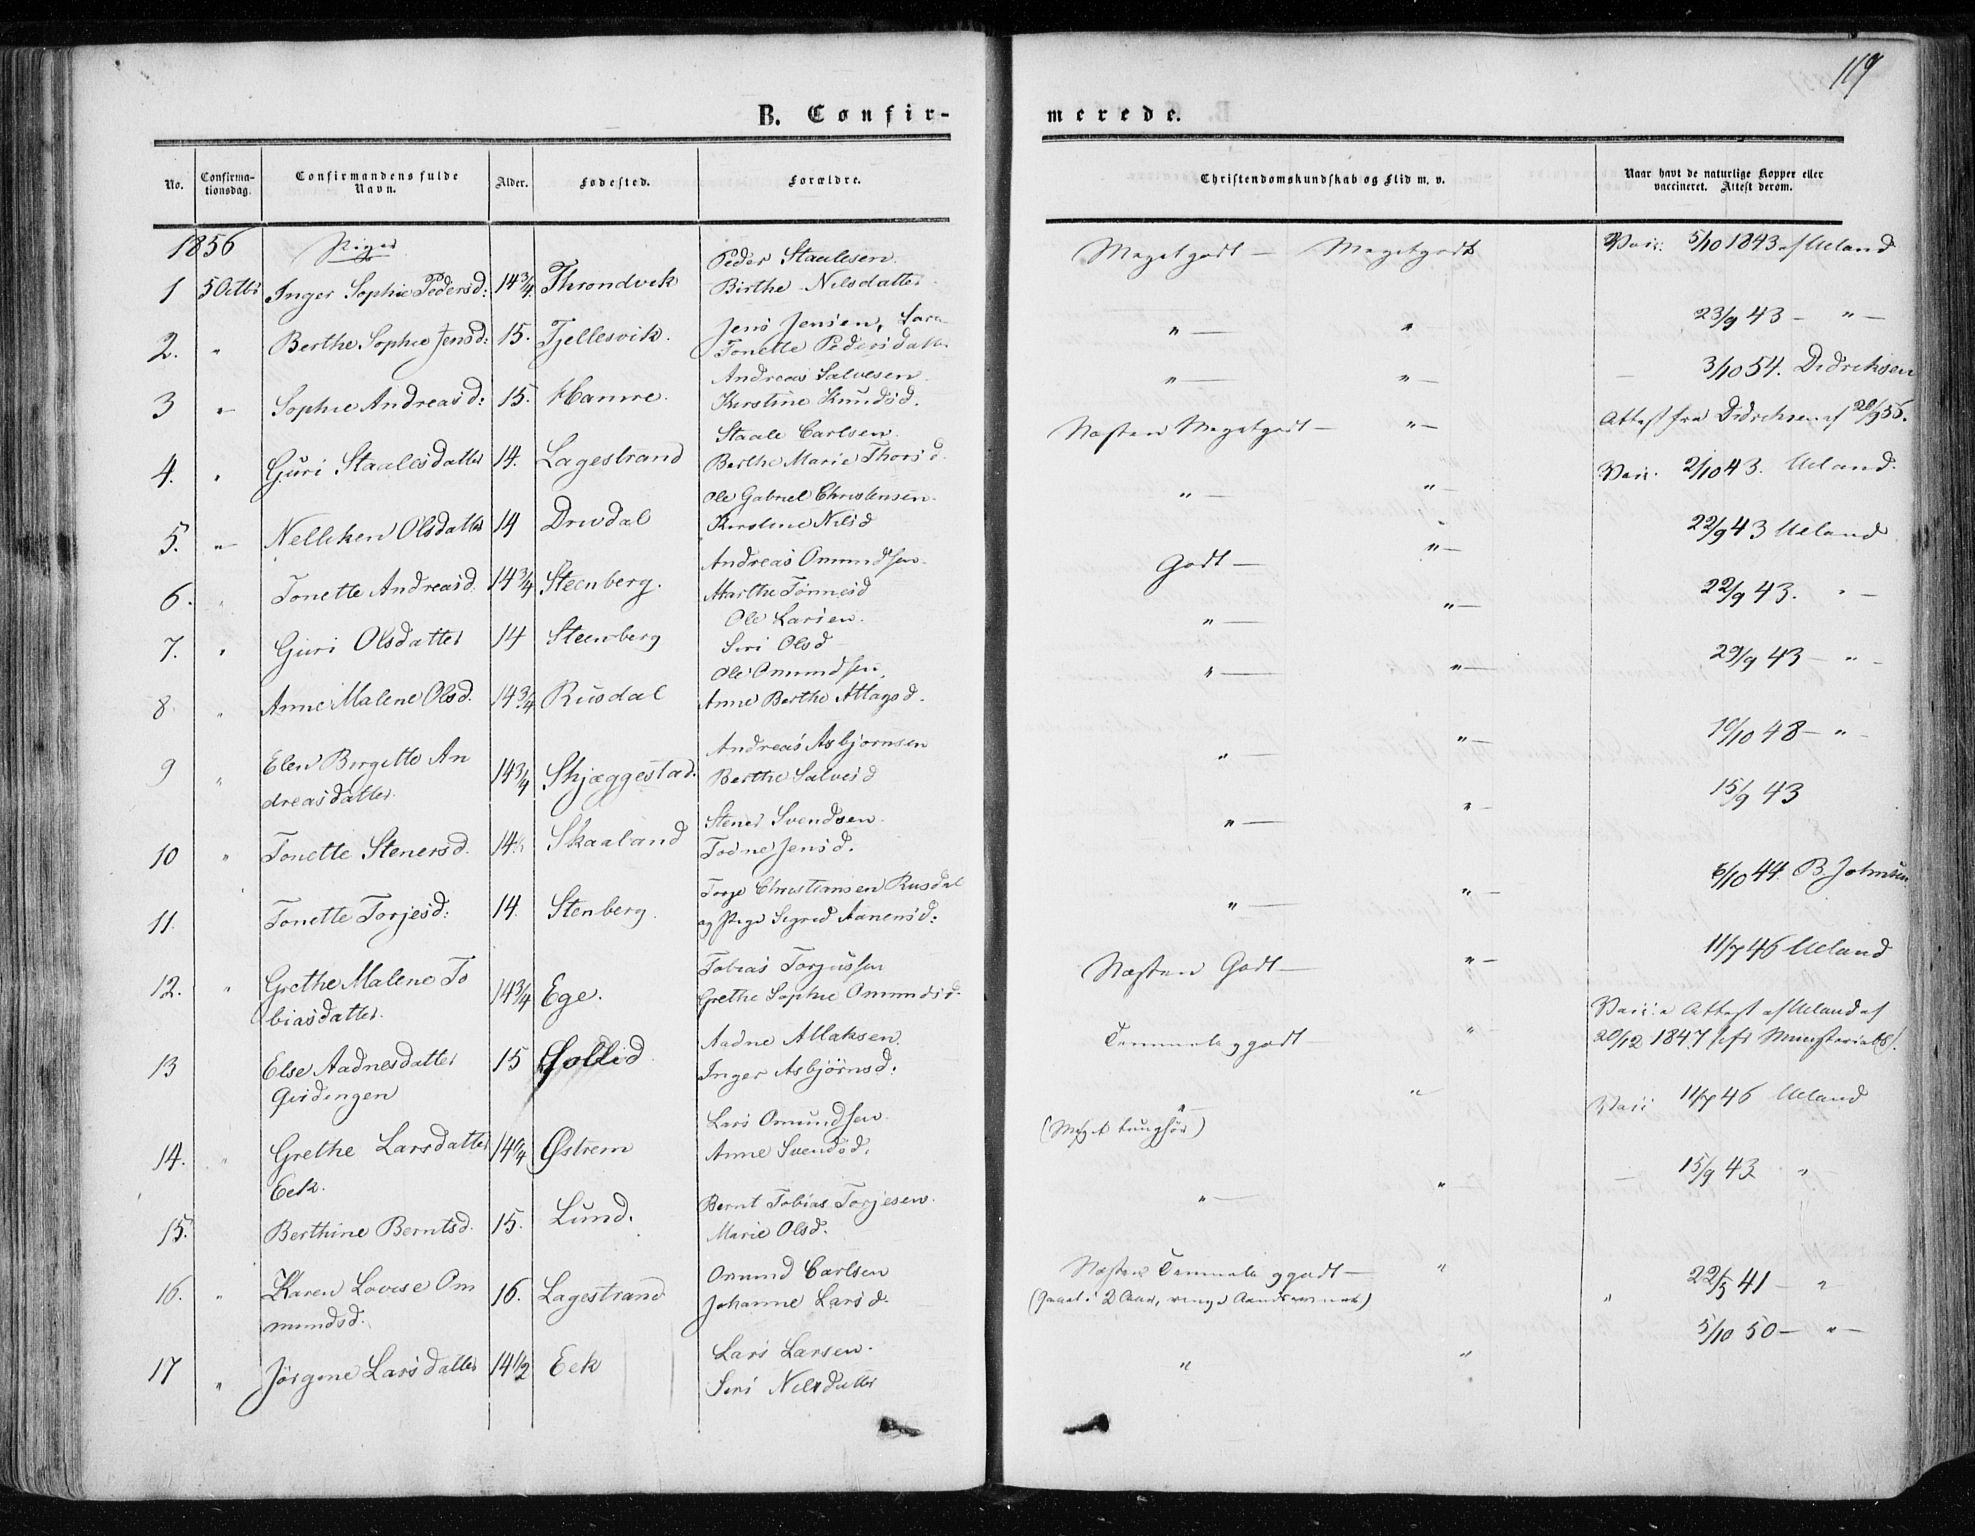 119
B. Confir-
merede.
No.
Confirma-
tionsdag.
Confirmandens fulde
Navn.
Alder.
Fødested.
Forældre.
Christendomskundskab og Flid m. v.
Naar havt de naturlige Kopper eller
vaccineret. Attest derom.
1856 Piger
1 5 Octbr Inger Sophie Pedersd: 14 3/4 Throndvik Peder Staalesen
Birthe Nilsdatter Megetgodt — Megetgodt Vacc: 5/10 1843 af Ueland
2. " Berthe Sophie Jensd: 15. Fjellesvik. Jens Jensen,
Tonette Pedersdatter " — " 23/9 43 — " —
3 " Sophie Andreasd: 15. Hamre. Andreas Salvesen
Kirstine Knudsd. " — " — 3/10 54. Didrichsen
4. " Guri Staalesdatter 14. Lagestrand Staale Carlsen
Berthe Marie Thorsd. Næsten Megetgodt — " — Attest fra Didrichsen af 20/9 56.
5. " Nelleken Olsdatter 14 Drivdal Ole Gabriel Christensen
Kirstine Nilsd " — " — Vacc. 2/10 43. Ueland.
6. " Tonette Andreasd. 14 3/4 Steenberg. Andreas Omundsen
Marthe Tönnesd Godt — " — 22/9 43 Ueland
7. " Guri Olsdatter 14 Steenberg Ole Larsen.
Siri Olsd " — " — 22/9 43. " —
8. " Anne Malene Olsd. 14 3/4 Rusdal Ole Omundsen,
Anne Berthe Atlagsd. " — " — 29/9 43 — " —
9 " Elen Birgitte An
dreasdatter 14 3/4 Skjæggestad. Andreas Asbjørnsen
Berthe Salvesd " — " — 10/10 48 — " —
10 " Tonette Stenersd. 14 Skaaland Stener Svendsen
Todne Jensd. " — " — 15/9 43
11. Tonette Torjesd: 14. Stenberg Torje Christiansen Rusdal
og Pige Sigrid Aanensd: " — " — 6/10 44. B. Johnsen
12. " Grethe Malene To
biasdatter. 14 3/4 Ege. Tobias Torjussen
Grethe Sophie Omundsd. Næsten Godt — " — 11/7 46 Ueland
13 Else Aadnesdatter
Gridengen 15 Sollid Aadne Atlaksen.
Inger Asbjörnsd. Temmelig godt " — Vacc: Attest af Ueland af
20/12 1847
14. " Grethe Larsdatter
Eek. 14 Østrem Lars Omundsen
Anne Svendsd. " —
(Meget tunghör) " Vacc 11/7 46 Ueland
15. Berthine Berntsd. 15. Lund. Bernt Tobias Torjesen.
Marie Olsd. " — " — 15/9 43 "
16. " Karen Lovise Om
mundsd. 16. Lagestrand Omund Carlsen
Johanne Larsd. Næsten Temmelig godt — "
" 22/5 41 — "
17 " Jørgine Larsdatter 14 1/2 Eek Lars Larsen.
Siri Nilsdatter " " 5/10 50 — " —